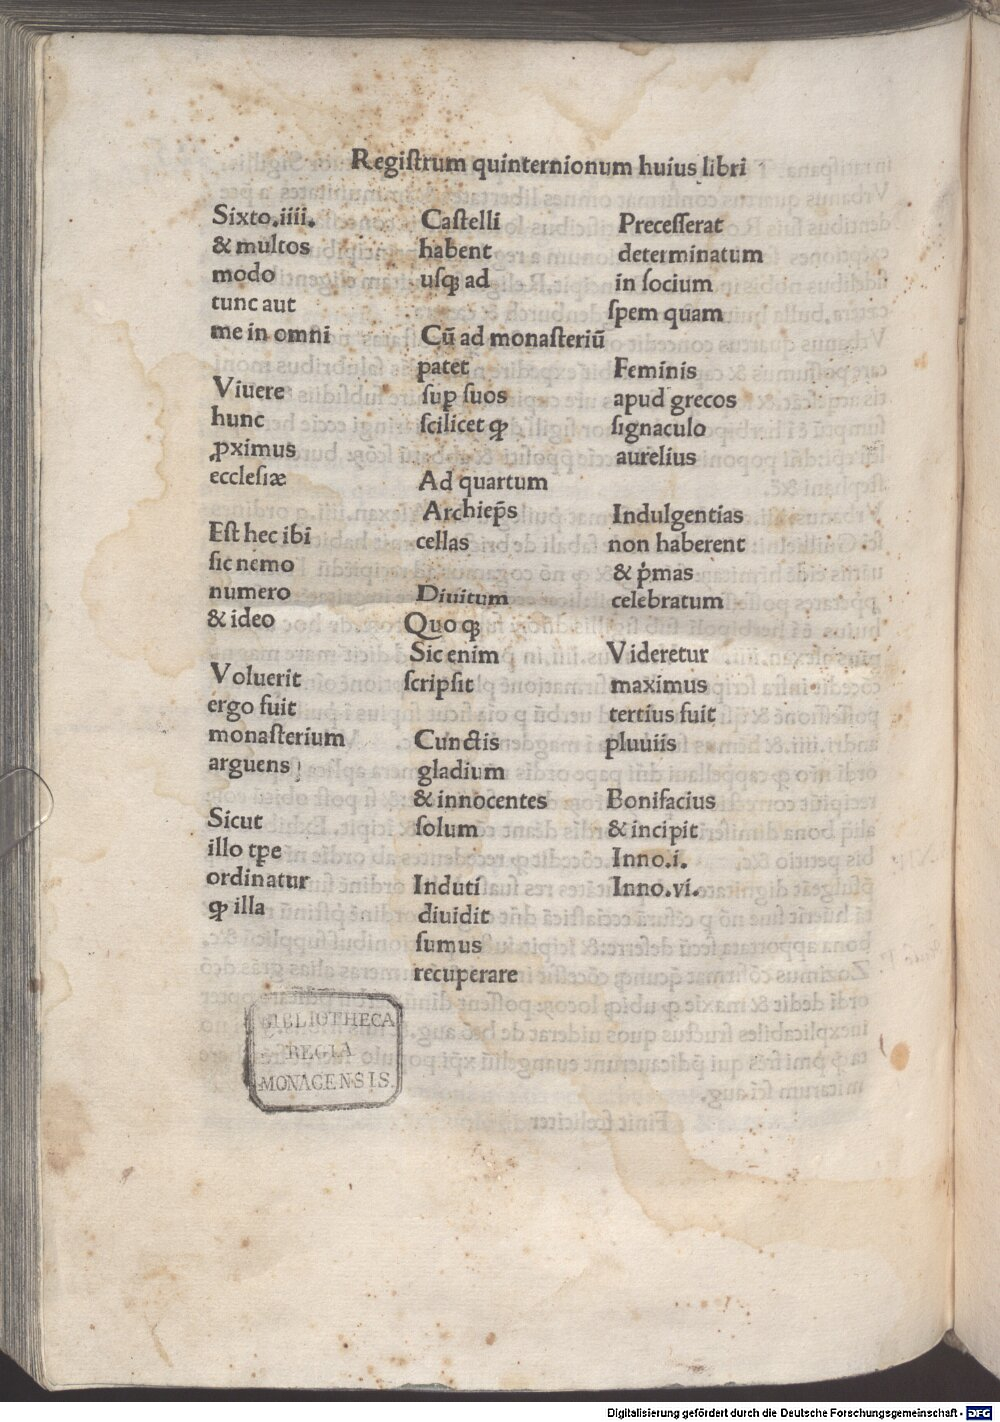 Registrum quinternionum huius libri
Sixto.iiii.
& multos
modo
tunc aut
me in omni
Viuere
hunc
ꝓximus
ecclesiæ
Est hec ibi
sic nemo
numero
& ideo
Voluerit
ergo fuit
monasterium
arguens
Sicut
illo tꝑe
ordinatur
ꝙ illa
Castelli
habent
usqꝫ ad
Cū ad monasteriū
patet
suꝑ suos
scilicet ꝙ
Ad quartum
Archiep̄s
cellas
Diuitum
Quoqꝫ
Sic enim
scripsit
Cunctis
gladium
& innocentes
solum
Induti
diuidit
sumus
recuperare
Precesserat
determinatum
in socium
spem quam
Feminis
apud grecos
signaculo
aurelius
Indulgentias
non haberent
& p̓mas
celebratum
Videretur
maximus
tertius fuit
pluuiis
Bonifacius
& incipit
Inno.i.
Inno.vi.
BIBLIOTHECA
REGIA
MONACENSIS.
Digitalisierung gefördert durch die Deutsche Forschungsgemeinschaft - DFG